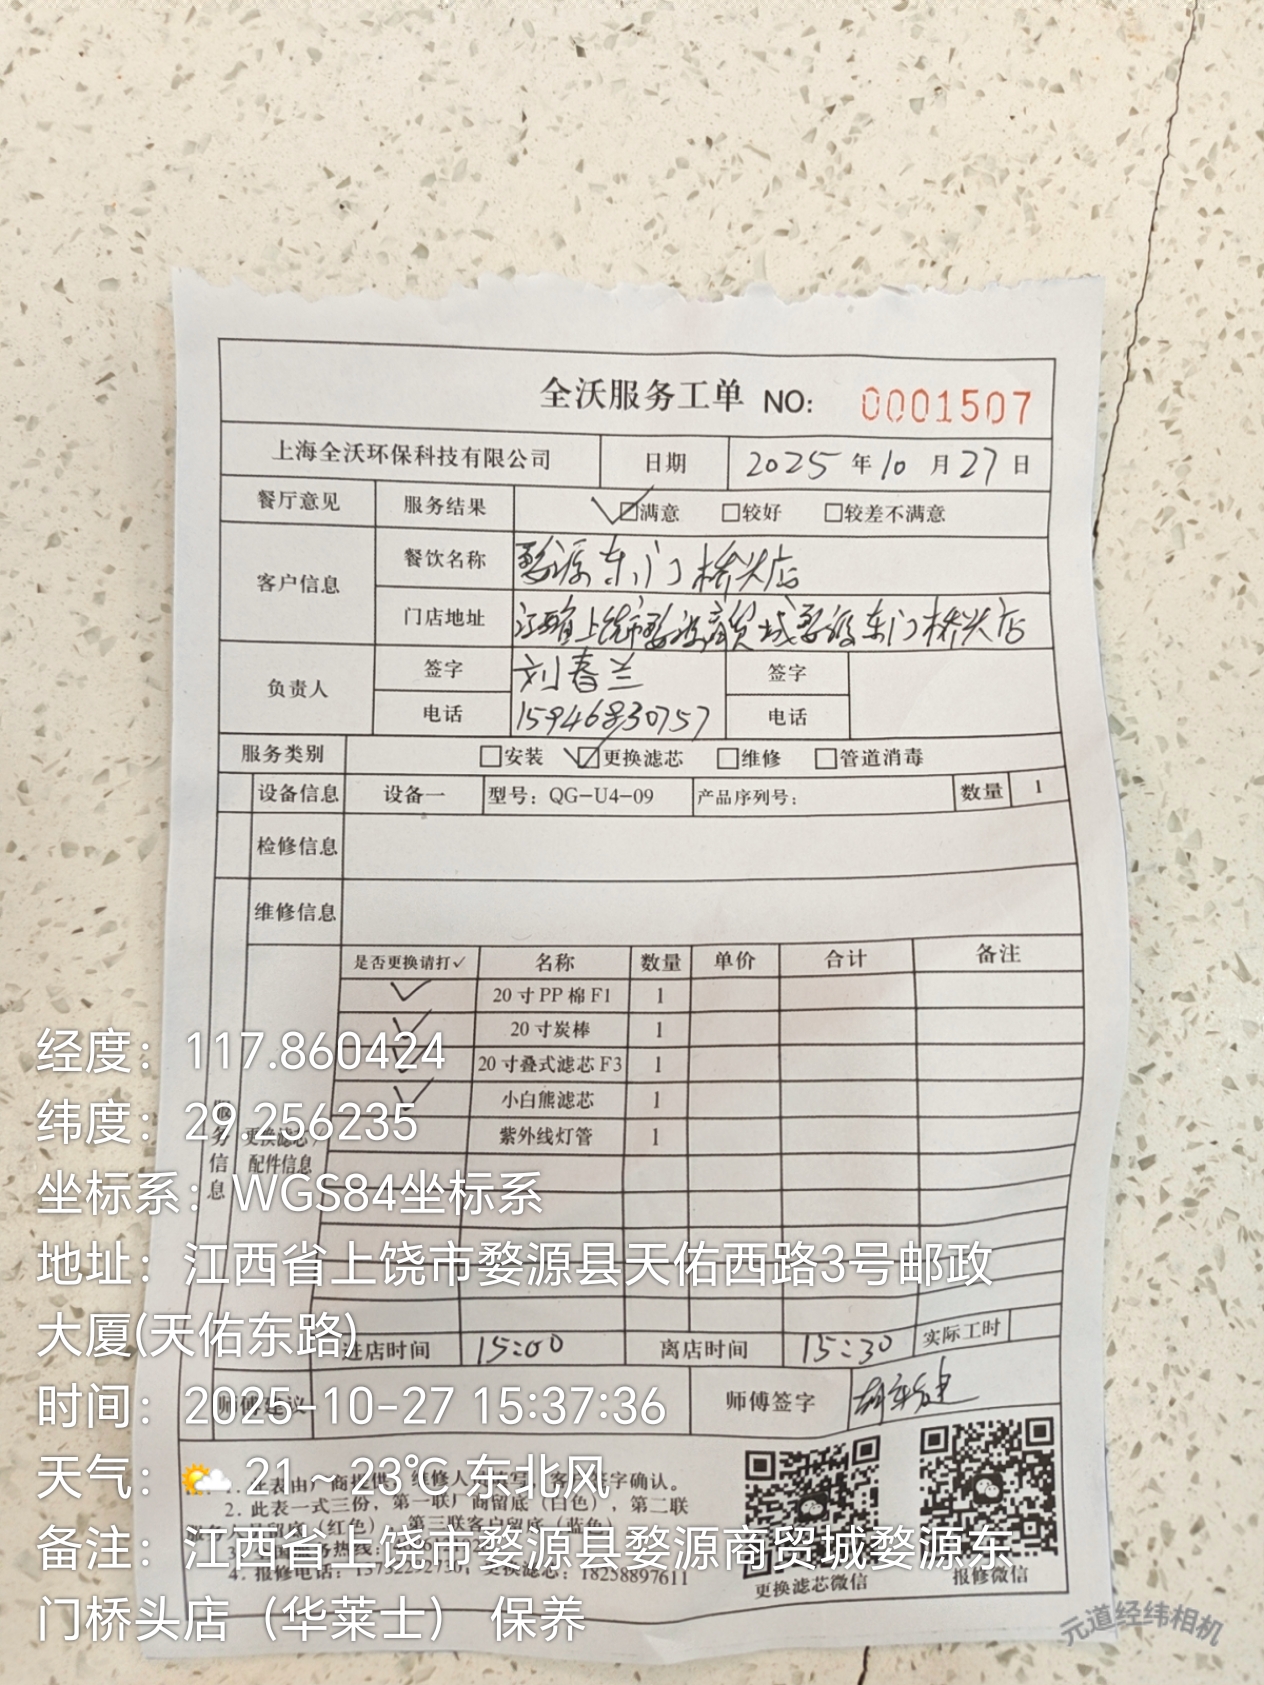 全沃服务工单 NO: 0001507
上海全沃环保科技有限公司 日期 2025年10月27日
餐厅意见 服务结果 ☑满意 □较好 □较差不满意
客户信息 餐饮名称 婺源东门桥头店
门店地址 江西省上饶市婺源商贸城婺源东门桥头店
负责人 签字 刘春兰 签字
电话 15946830757 电话
服务类别 □安装 ☑更换滤芯 □维修 □管道消毒
设备信息 设备一 型号：QG-U4-09 产品序列号： 数量 1
检修信息
维修信息
服务信息 更换滤芯/配件信息
是否更换请打✓ 名称 数量 单价 合计 备注
✓ 20寸PP棉F1 1
✓ 20寸炭棒 1
✓ 20寸叠式滤芯F3 1
✓ 小白熊滤芯 1
紫外线灯管 1
进店时间 15:00 离店时间 15:30 实际工时
师傅建议 师傅签字
1. 此表由厂商提供，维修人 填写，客户签字确认。
2. 此表一式三份，第一联厂商留底（白色），第二联
留底（红色），第三联客户留底（蓝色）
服务热线：
4. 报修电话： 更换滤芯：18258897611
更换滤芯微信 报修微信
经度：117.860424
纬度：29.256235
坐标系：WGS84坐标系
地址：江西省上饶市婺源县天佑西路3号邮政
大厦(天佑东路)
时间：2025-10-27 15:37:36
天气：21~23℃ 东北风
备注：江西省上饶市婺源县婺源商贸城婺源东
门桥头店（华莱士） 保养
元道经纬相机